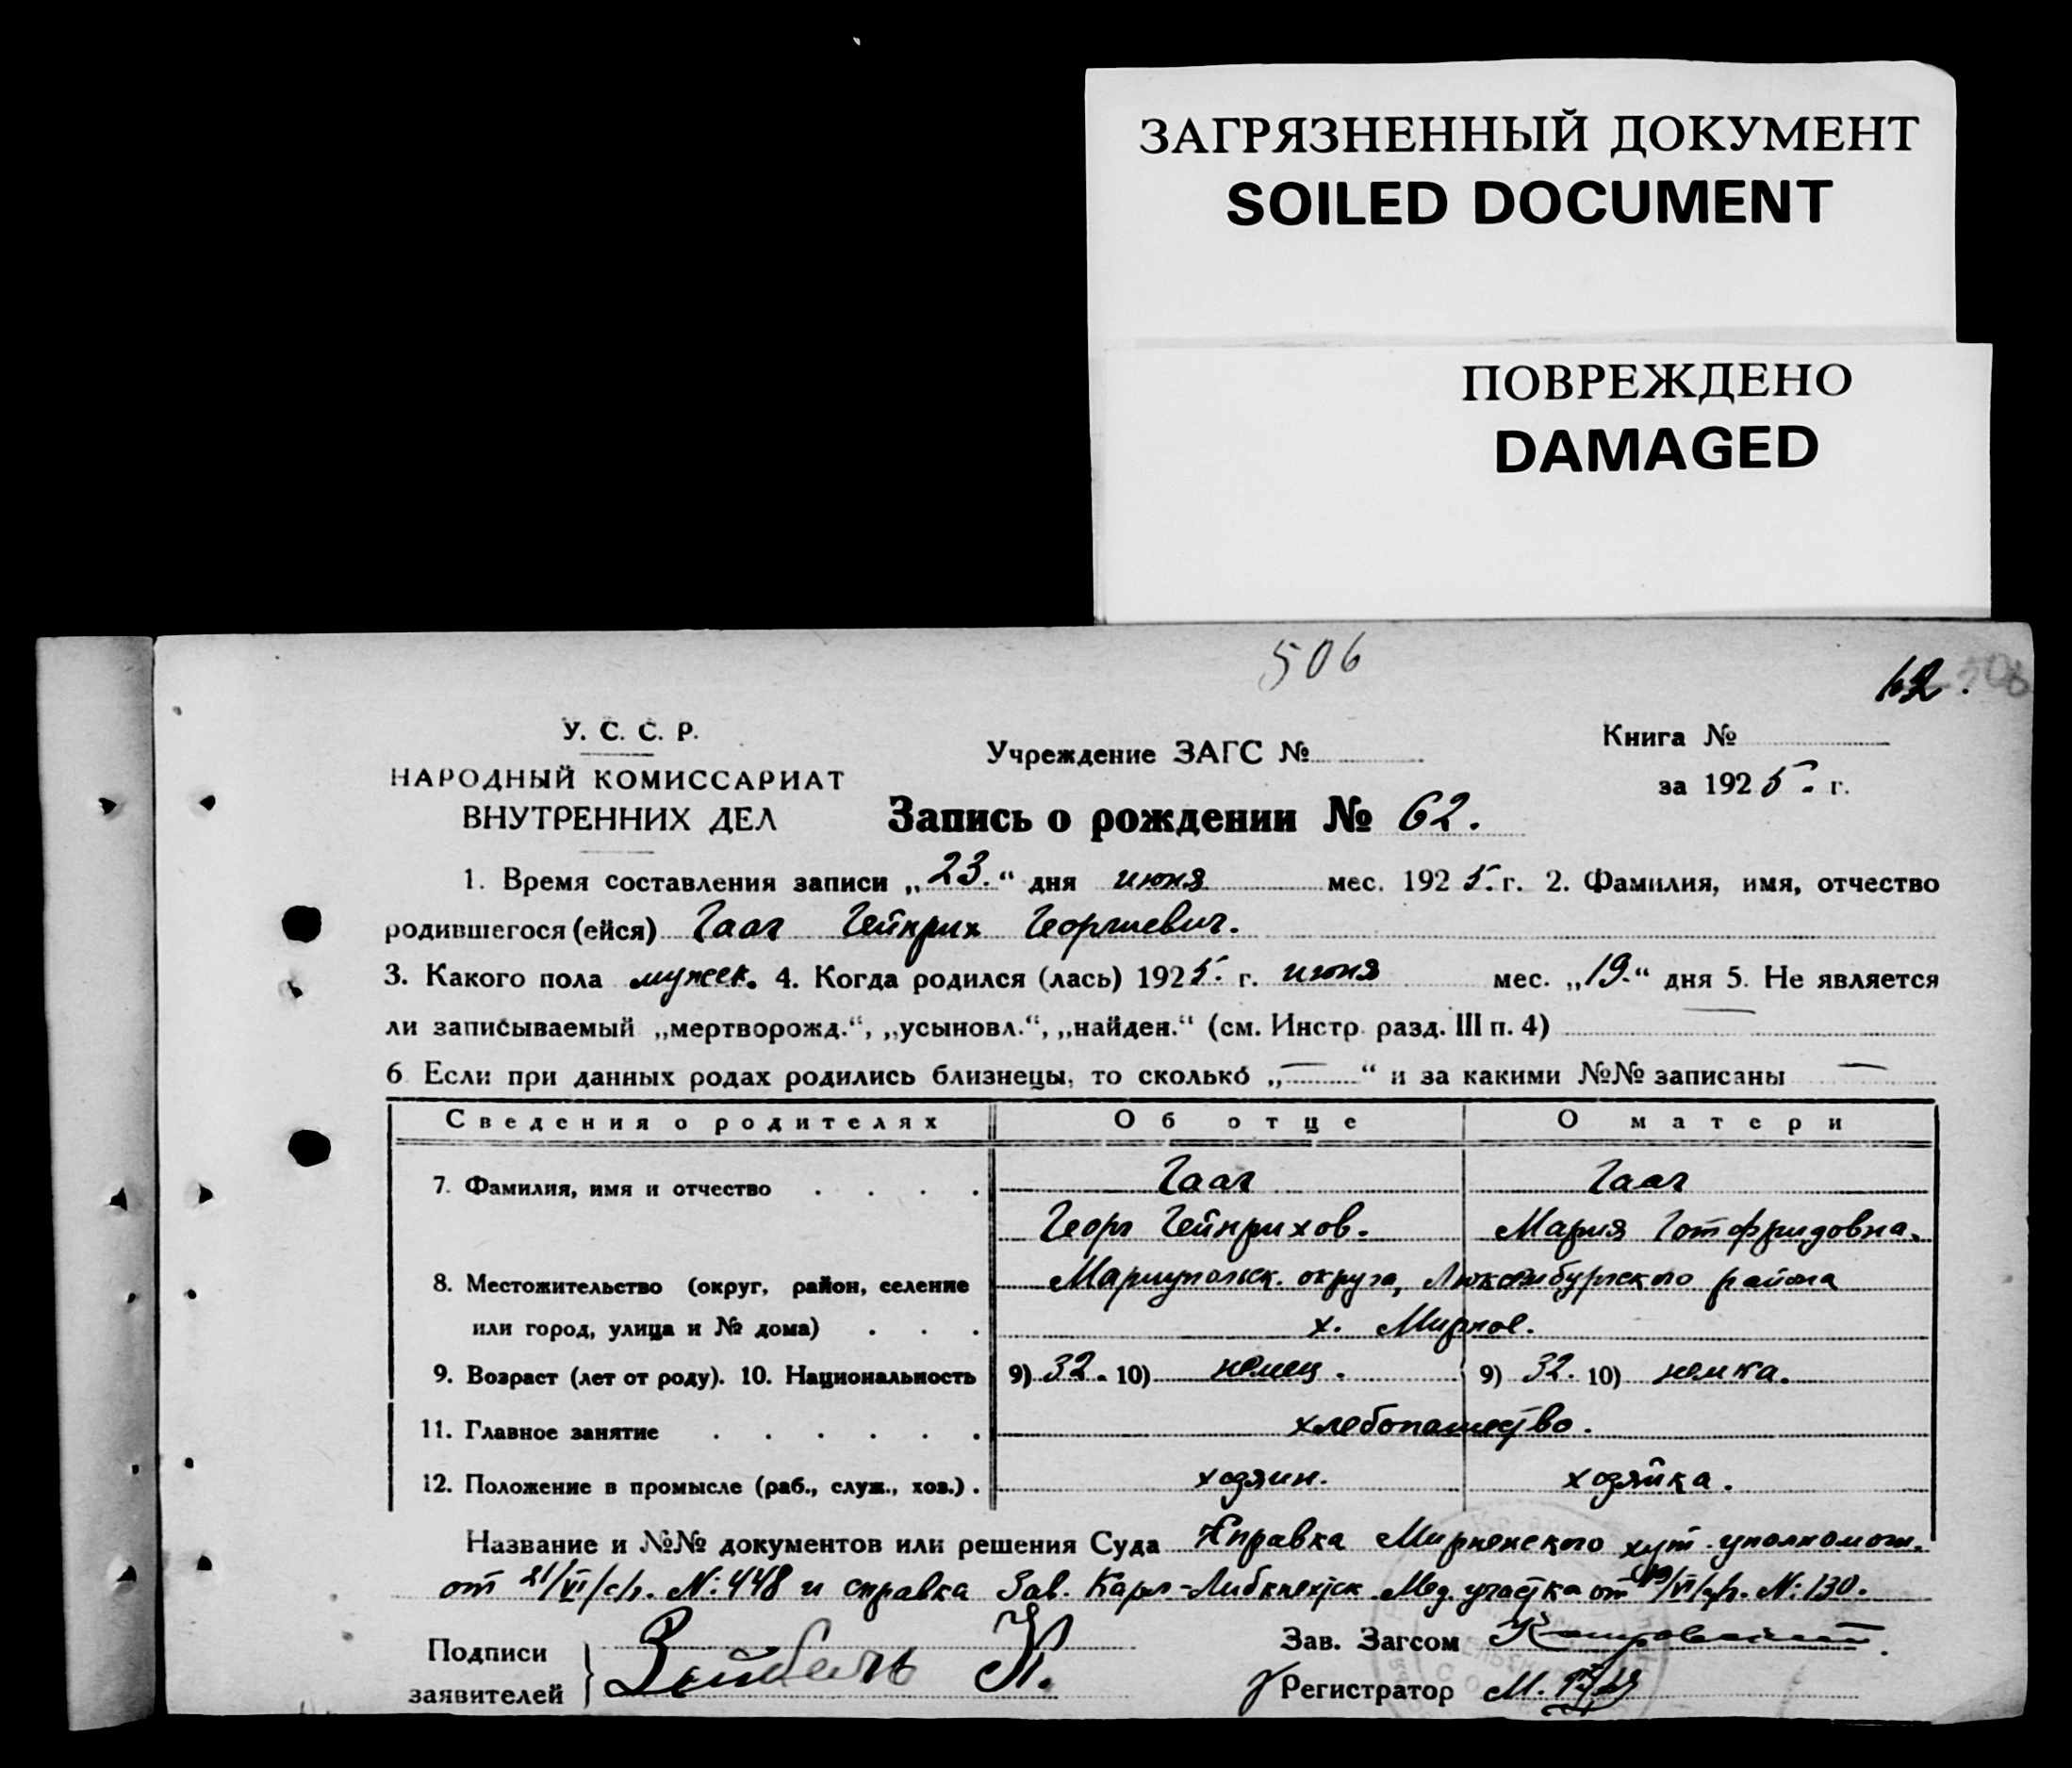 ЗАГРЯЗНЕННЫЙ ДОКУМЕНТ
SOILED DOCUMENT
ПОВРЕЖДЕНО
DAMAGED
506
62.
У. С. С. Р.
НАРОДНЫЙ КОМИССАРИАТ
ВНУТРЕННИХ ДЕЛ
Учреждение ЗАГС №
Книга №
за 1925. г.
Запись о рождении № 62.
1. Время составления записи „23.“ дня июня мес. 1925. г. 2. Фамилия, имя, отчество
родившегося (ейся) Гааг Гейнрих Георгиевич.
3. Какого пола мужск. 4. Когда родился (лась) 1925. г. июня мес. „19.“ дня 5. Не является
ли записываемый „мертворожд.“, „усыновл.“, „найден.“ (см. Инстр. разд. III п. 4) —
6 Если при данных родах родились близнецы, то сколько „—“ и за какими №№ записаны —
Сведения о родителях Об отце О матери
7. Фамилия, имя и отчество . . . . Гааг Гааг
Георг Гейнрихов. Мария Готфридовна.
8. Местожительство (округ, район, селение Мариупольск. округа, Люксембургского района
или город, улица и № дома) . . . х. Мирное.
9. Возраст (лет от роду). 10. Национальность 9) 32. 10) немец. 9) 32. 10) немка.
11. Главное занятие . . . . . . хлебопашество.
12. Положение в промысле (раб., служ., хоз.) . хозяин. хозяйка.
Название и №№ документов или решения Суда Справка Мирненского хут. уполномоч.
от 21/VI/с/г. №: 448 и справка Зав. Карл-Либкнехтск. Мед. участка от /VI/с/г. №: 130.
Подписи
заявителей
Зейбель К.
Зав. Загсом
Регистратор М.